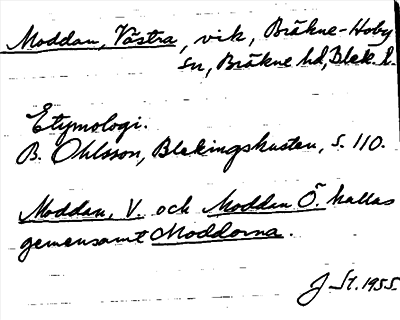 Moddan, Västra, vik, Bräkne-Hoby
sn, Bräkne hd, Blek. l.
Etymologi.
B. Ohlsson, Blekingskusten, s. 110.
Moddan, V. och Moddan Ö. kallas
gemensamt Moddorna.
J. St. 1955.